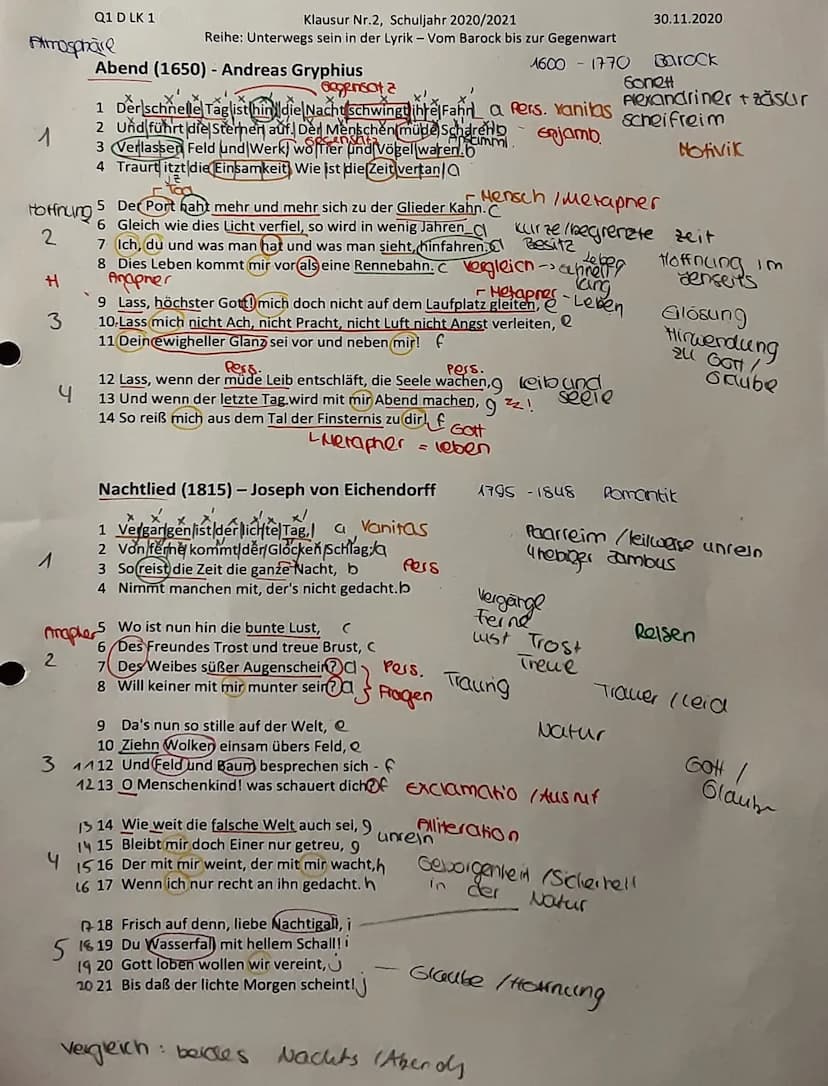 Q1 D LK 1 Klausur Nr.2, Schuljahr 2020/2021 30.11.2020
Reihe: Unterwegs sein in der Lyrik – Vom Barock bis zur Gegenwart
Atmosphäre
1600 - 1770 Barock
Abend (1650) - Andreas Gryphius
Gegensatz
Sonett
Alexandriner + Zäsur
1 Der schnelle Tag ist hin/ die Nacht schwingt ihre Fahn/ a Pers. Vanitas
scheifreim
1
2 Und führt die Sternen auf. Der Menschen müde Scharen b - Enjamb.
3 Verlassen Feld und Werk/ wo Tier und Vögel waren. b
Motivik
4 Traurt itzt die Einsamkeit. Wie ist die Zeit vertan! a
Tod
Mensch / Metapher
Hoffnung
5 Der Port naht mehr und mehr sich zu der Glieder Kahn. c
2
6 Gleich wie dies Licht verfiel, so wird in wenig Jahren d kurze/begrenzte Zeit
7 Ich, du und was man hat und was man sieht, hinfahren. d Besitz
8 Dies Leben kommt mir vor als eine Rennebahn. c Vergleich -> Leben schnell
Hoffnung im Jenseits
Anapher
Metapher - Leben
9 Lass, höchster Gott! mich doch nicht auf dem Laufplatz gleiten, e
3
10 Lass mich nicht Ach, nicht Pracht, nicht Luft nicht Angst verleiten, e
11 Dein ewigheller Glanz sei vor und neben mir! f
Erlösung
Hinwendung
zu Gott /
Glaube
Pers. Pers.
12 Lass, wenn der müde Leib entschläft, die Seele wachen, g Leib und Seele
4
13 Und wenn der letzte Tag wird mit mir Abend machen, g
14 So reiß mich aus dem Tal der Finsternis zu dir! f Gott
Metapher = Leben
Nachtlied (1815) – Joseph von Eichendorff 1795 - 1848 Romantik
1 Vergangen ist der lichte Tag, a Vanitas
Paarreim / teilweise unrein
2 Von ferne kommt der Glocken Schlag; a
4hebiger Jambus
1
3 So reist die Zeit die ganze Nacht, b Pers
4 Nimmt manchen mit, der's nicht gedacht. b
Vergänge
Ferne
Lust Trost
Treue
Reisen
Anapher
5 Wo ist nun hin die bunte Lust, c
6 Des Freundes Trost und treue Brust, c
2
7 Des Weibes süßer Augenschein? d Pers.
8 Will keiner mit mir munter sein? d Fragen
Traurig
Trauer / Leid
9 Da's nun so stille auf der Welt, e
Natur
10 Ziehn Wolken einsam übers Feld, e
3
11 12 Und Feld und Baum besprechen sich - f
12 13 O Menschenkind! was schauert dich? f Exclamatio / Ausruf
Gott /
Glaube
13 14 Wie weit die falsche Welt auch sei, g Alliteration
14 15 Bleibt mir doch Einer nur getreu, g unrein
4
15 16 Der mit mir weint, der mit mir wacht, h
16 17 Wenn ich nur recht an ihn gedacht. h
Geborgenheit / Sicherheit
in der Natur
17 18 Frisch auf denn, liebe Nachtigall, i
5
18 19 Du Wasserfall mit hellem Schall! i
19 20 Gott loben wollen wir vereint, j
20 21 Bis daß der lichte Morgen scheint! j
Glaube / Hoffnung
Vergleich : beides Nachts / Abends